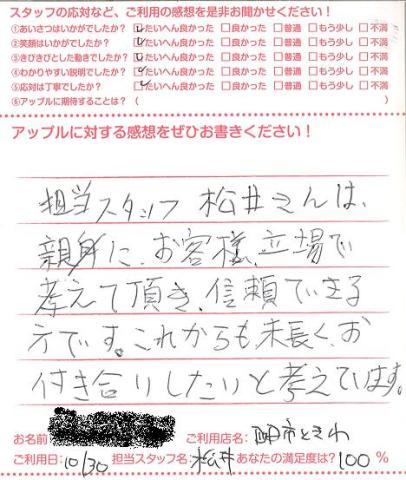 スタッフの応対など、ご利用の感想を是非お聞かせください！
①あいさつはいかがでしたか？ ☑たいへん良かった □良かった □普通 □もう少し □不満
②笑顔はいかがでしたか？ ☑たいへん良かった □良かった □普通 □もう少し □不満
③きびきびとした動きでしたか？ ☑たいへん良かった □良かった □普通 □もう少し □不満
④わかりやすい説明でしたか？ ☑たいへん良かった □良かった □普通 □もう少し □不満
⑤応対は丁寧でしたか？ ☑たいへん良かった □良かった □普通 □もう少し □不満
⑥アップルに期待することは？（ ）
アップルに対する感想をぜひお書きください！
担当スタッフ 松井さんは、
親身に、お客様、立場で
考えて頂き、信頼できる
方です。これからも末長く、お
付き合いしたいと考えています。
お名前 ご利用店名: 四日市ときわ
ご利用日: 10/30 担当スタッフ名: 松井 あなたの満足度は? 100 %